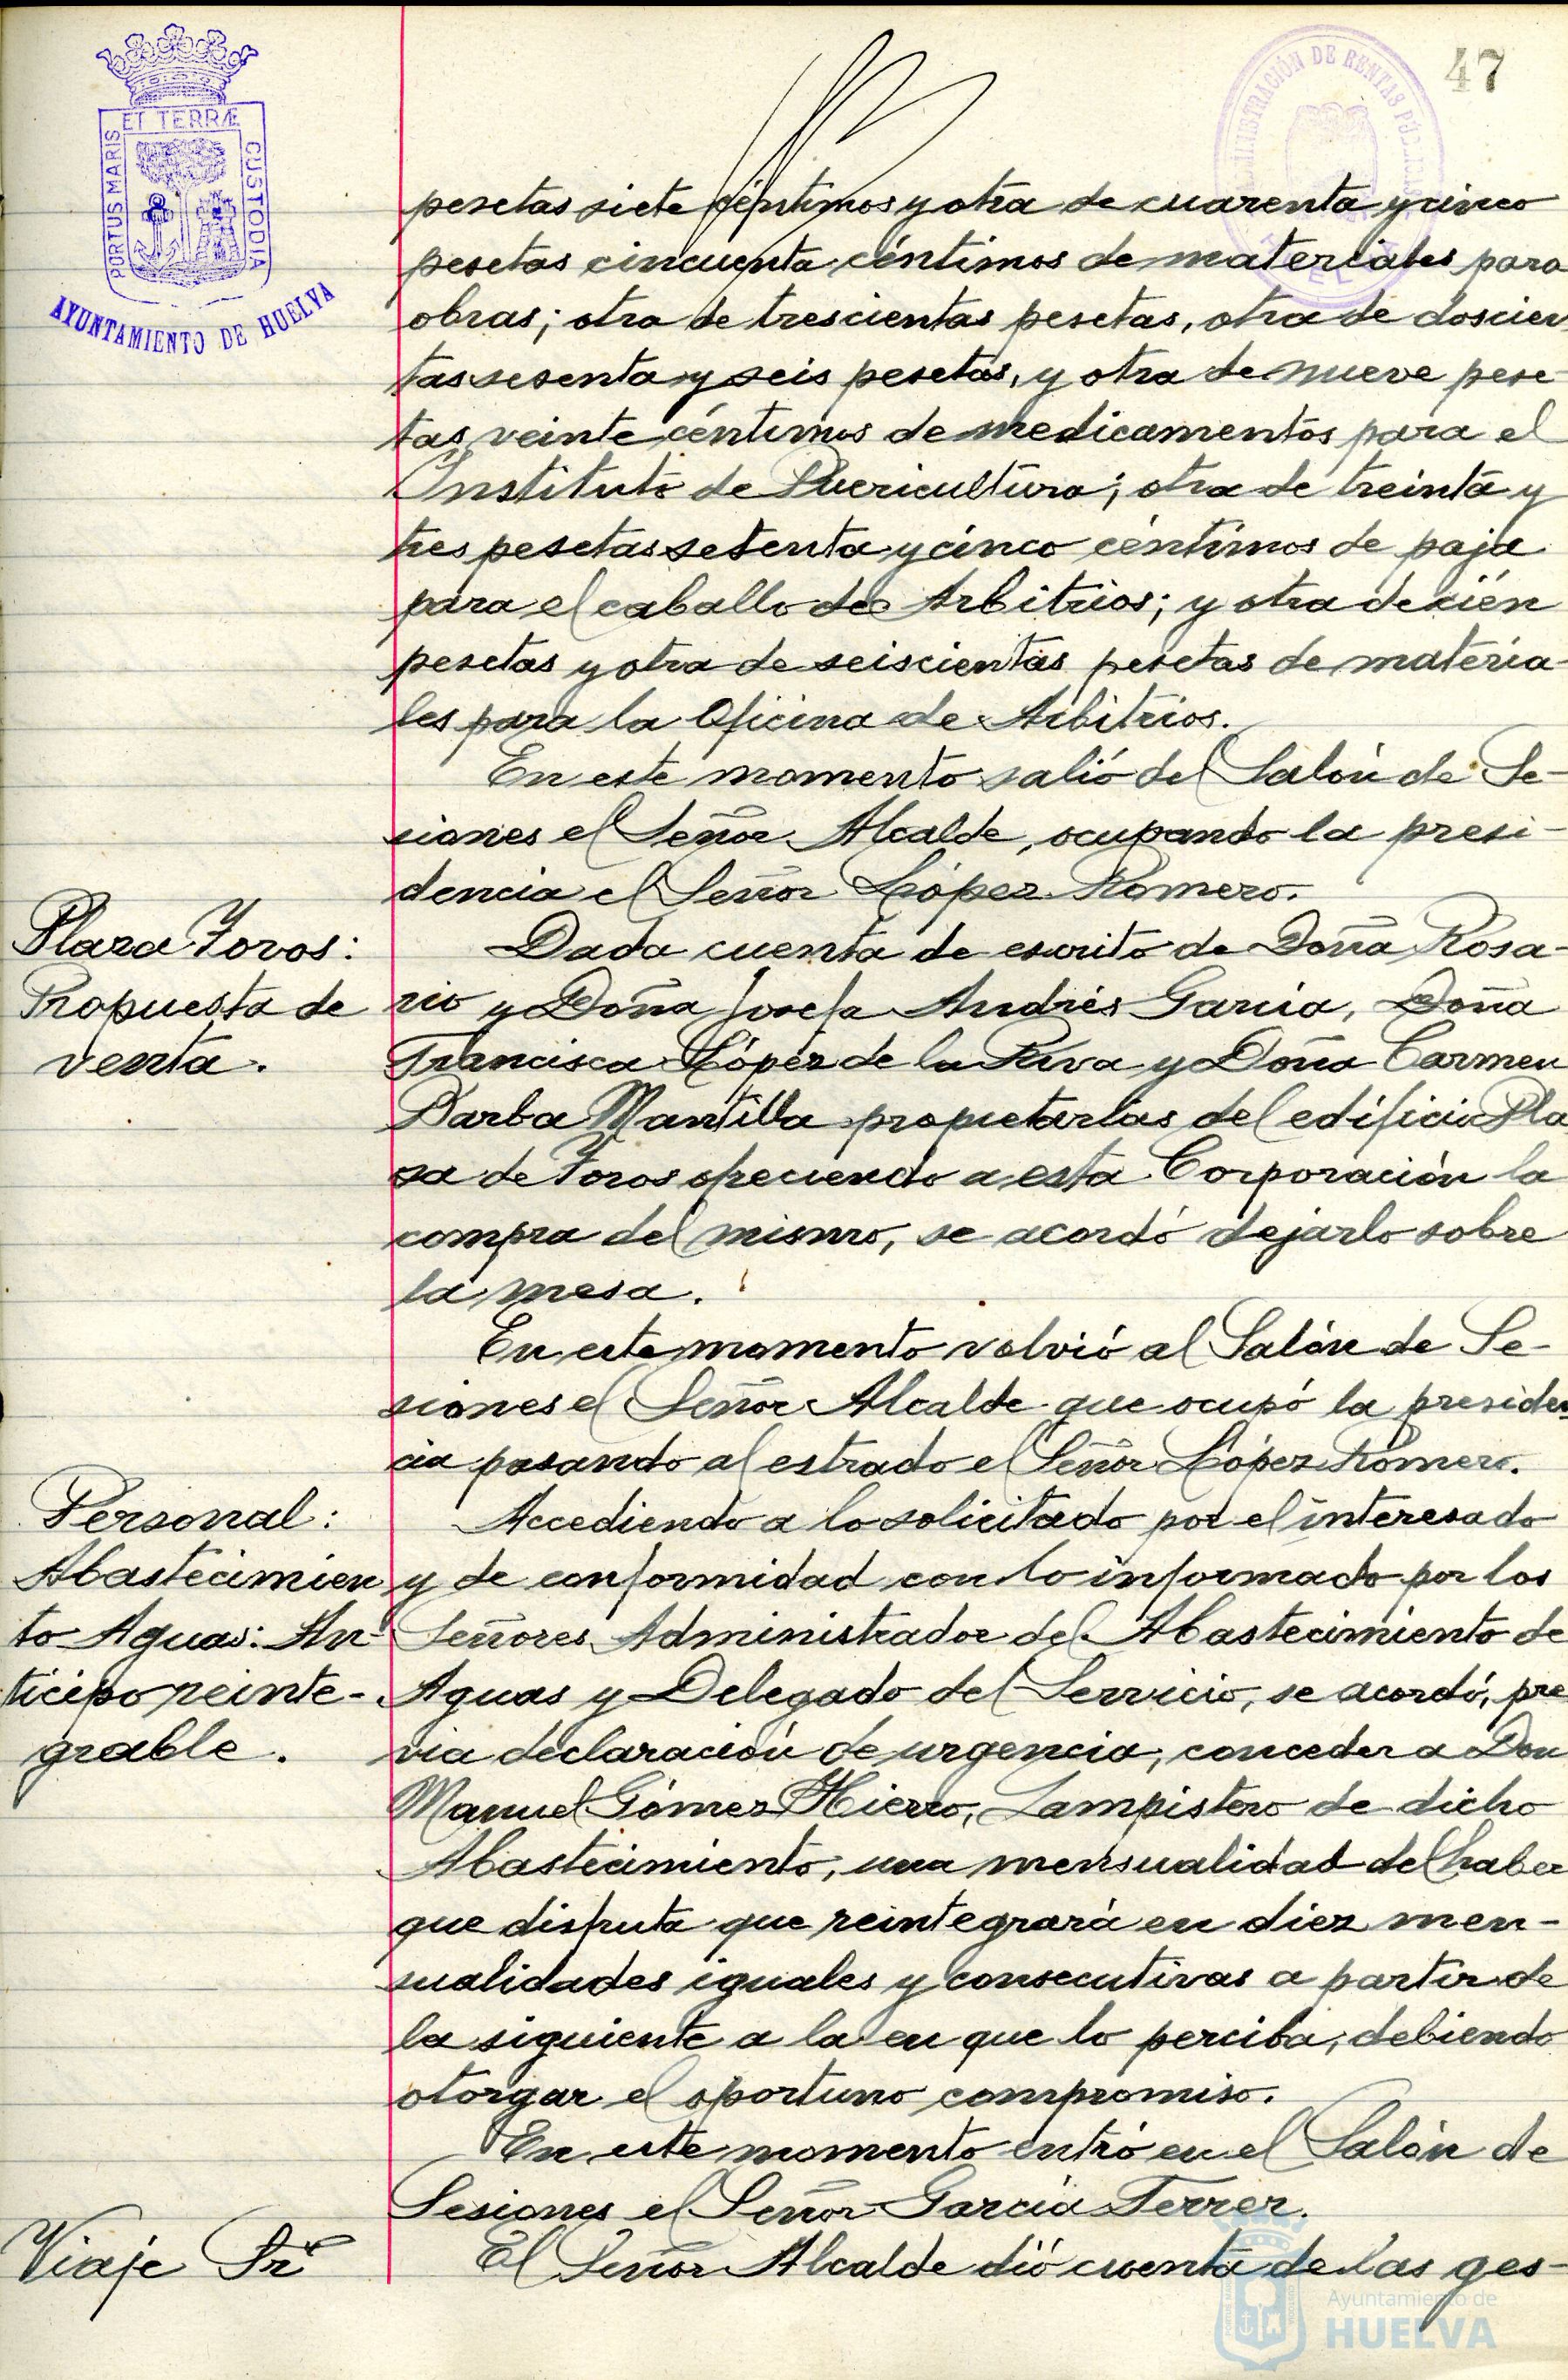 47
ET TERRÆ
PORTUS MARIS
CUSTODIA
AYUNTAMIENTO DE HUELVA
ADMINISTRACIÓN DE RENTAS PÚBLICAS
pesetas siete céntimos y otra de cuarenta y cinco
pesetas cincuenta céntimos de materiales para
obras; otra de trescientas pesetas, otra de doscien
tas sesenta y seis pesetas, y otra de nueve pese-
tas veinte céntimos de medicamentos para el
Instituto de Puericultura; otra de treinta y
tres pesetas setenta y cinco céntimos de paja
para el caballo de Arbitrios; y otra de cién
pesetas y otra de seiscientas pesetas de materia-
les para la Oficina de Arbitrios.
En este momento salió del Salón de Se-
siones el Señor Alcalde, ocupando la presi-
dencia el Señor López Romero.
Plaza Toros:
Propuesta de
venta.
Dada cuenta de escrito de Doña Rosa-
rio y Doña Josefa Andrés García, Doña
Francisca López de la Riva y Doña Carmen
Barba Mantilla propietarias del edificio Pla
za de Toros ofreciendo a esta Corporación la
compra del mismo, se acordó dejarlo sobre
la mesa.
En este momento volvió al Salón de Se-
siones el Señor Alcalde que ocupó la presiden
cia pasando al estrado el Señor López Romero.
Personal:
Abastecimien
to Aguas: An-
ticipo reinte-
grable.
Accediendo a lo solicitado por el interesado
y de conformidad con lo informado por los
Señores Administrador del Abastecimiento de
Aguas y Delegado del Servicio, se acordó, pre
via declaración de urgencia, conceder a Don
Manuel Gómez Hierro, Lampistero de dicho
Abastecimiento, una mensualidad del haber
que disfruta que reintegrará en diez men-
sualidades iguales y consecutivas a partir de
la siguiente a la en que lo perciba, debiendo
otorgar el oportuno compromiso.
En este momento entró en el Salón de
Sesiones el Señor García Ferrer.
Viaje Sr
El Señor Alcalde dió cuenta de las ges-
Ayuntamiento de
HUELVA